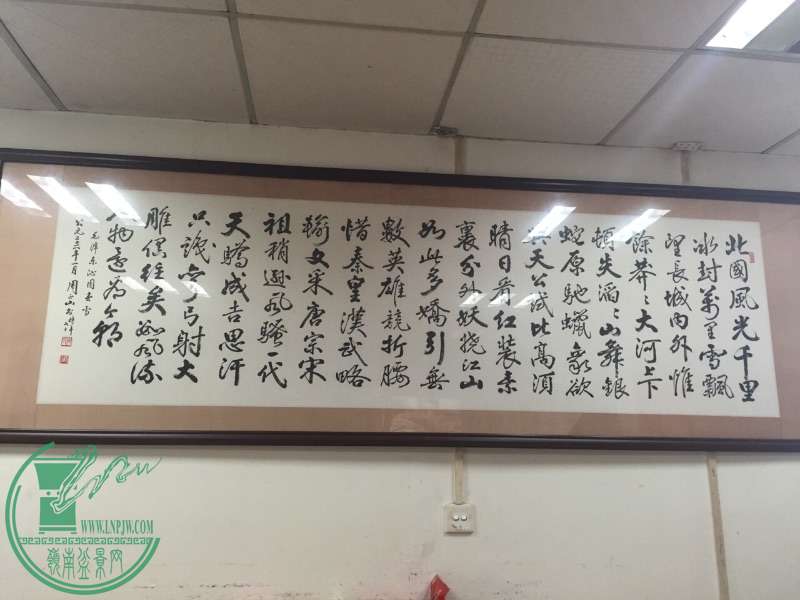 北國風光千里
冰封萬里雪飄
望長城內外惟
餘莽〻大河上下
頓失滔〻山舞銀
蛇原馳蠟象欲
與天公試比高須
晴日看紅裝素
裹分外妖嬈江山
如此多嬌引無
數英雄競折腰
惜秦皇漢武略
輸文采唐宗宋
祖稍遜風騷一代
天驕成吉思汗
只識彎弓射大
雕俱往矣數風流
人物還看今朝
毛澤東沁園春雪
WWW.LNPJW.COM
嶺南盆景网